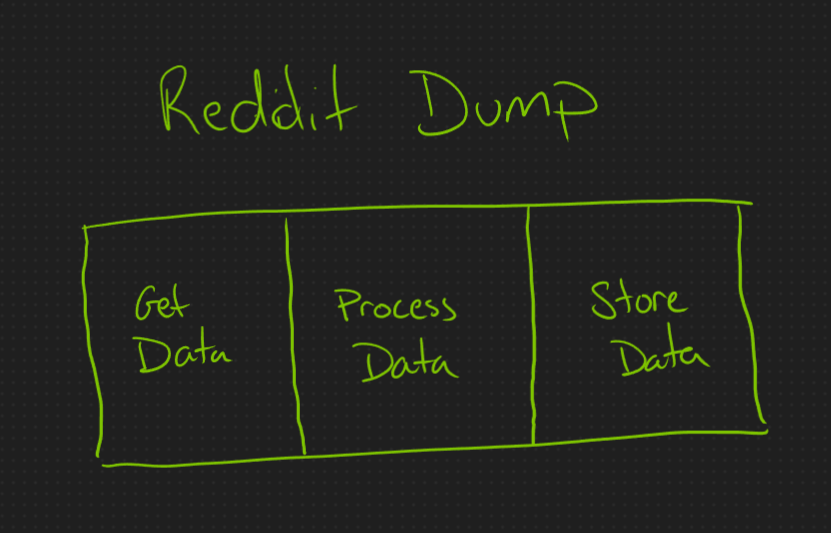 Reddit Dump
Get
Data
Process
Data
Store
Data